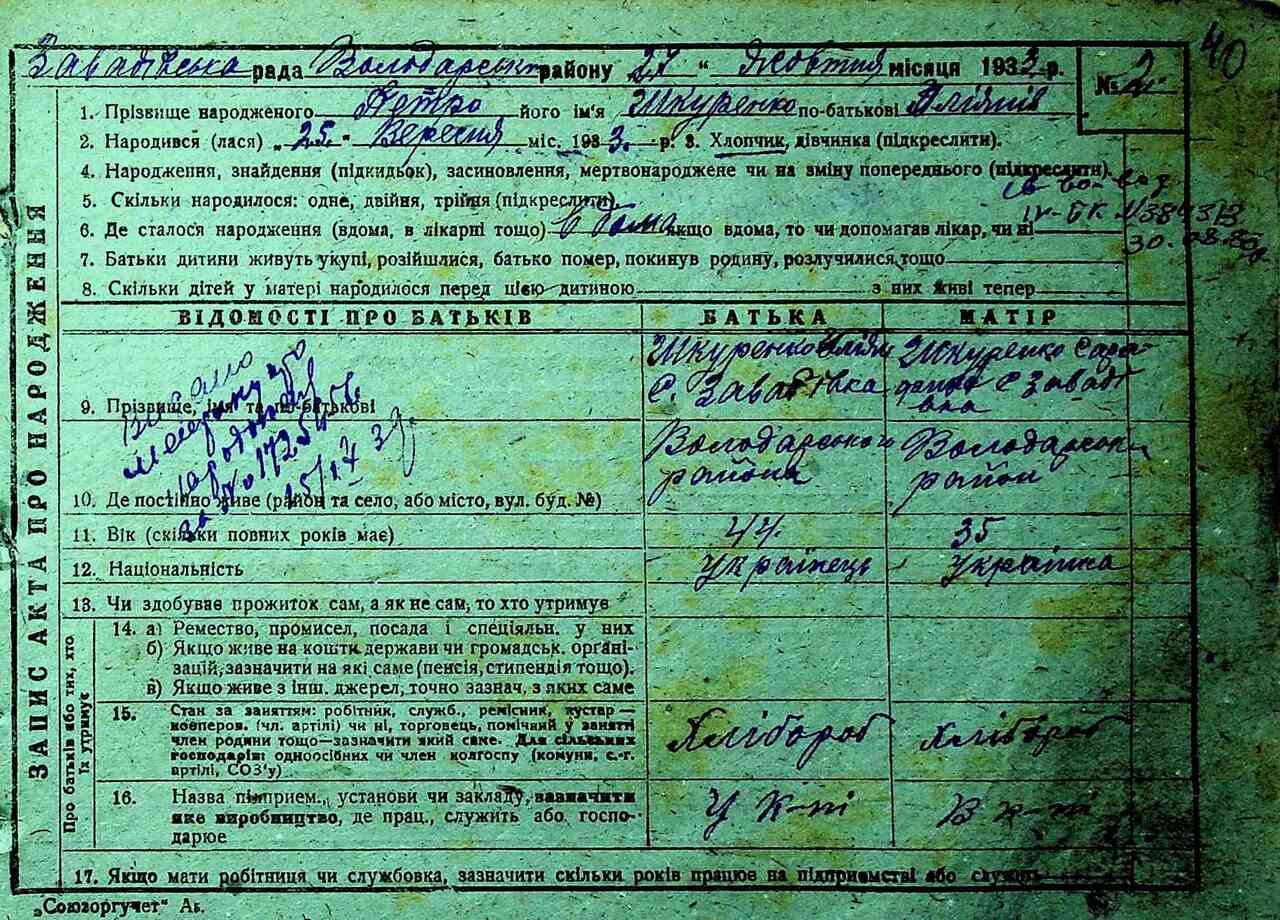 40
Завадівська рада Володарськ району 27 " Жовтня місяця 1933 р. № 2
1. Прізвище народженого Петро його ім'я Шкуренко по-батькові
2. Народився (лася) „25" Вересня міс. 1933 р. 3. Хлопчик, дівчинка (підкреслити).
4. Народження, знайдення (підкидьок), засиновлення, мертвонароджене чи на зміну попереднього (підкреслити).
5. Скільки народилося: одне, двійня, трійня (підкреслити)
6. Де сталося народження (вдома, в лікарні тощо) якщо вдома, то чи допомагав лікар, чи ні
IV-БК №384313
30.08.80р
7. Батьки дитини живуть укупі, розійшлися, батько помер, покинув родину, розлучилися тощо
8. Скільки дітей у матері народилося перед цією дитиною з них живі тепер
ЗАПИС АКТА ПРО НАРОДЖЕННЯ
ВІДОМОСТІ ПРО БАТЬКІВ БАТЬКА МАТІР
Видано
метрику про
народження
за № 172565
9. Прізвище, ім'я та по-батькові
Шкуренко
С. Завадівка
Шкуренко
с Завадівка
10. Де постійно живе (район та село, або місто, вул. буд. №)
Володарського
района
Володарськи
район
11. Вік (скільки повних років має) 44. 35
12. Національність Українець Українка
13. Чи здобуває прожиток сам, а як не сам, то хто утримує
Про батьків або тих, хто їх утримує
14. а) Ремество, промисел, посада і спеціяльн. у них
б) Якщо живе на кошти держави чи громадськ. органі-
зацій, зазначити на які саме (пенсія, стипендія тощо).
в) Якщо живе з інш. джерел, точно зазнач. з яких саме
15. Стан за заняттям: робітник, служб., ремісник, кустар—
кооперов. (чл. артілі) чи ні, торговець, помічний у занятті
член родини тощо—зазначити який саме. Для сільських
господарів: одноосібних чи член колгоспу (комуни, с.-г.
артілі, СОЗ'у)
Хлібороб Хлібороб
16. Назва підприєм., установи чи закладу, зазначити
яке виробництво, де прац., служить або госпо-
дарює
У К-пі В к-пі
17. Якщо мати робітниця чи службовка, зазначити скільки років працює на підприємстві або служить
„Союзоргучет" Аб.